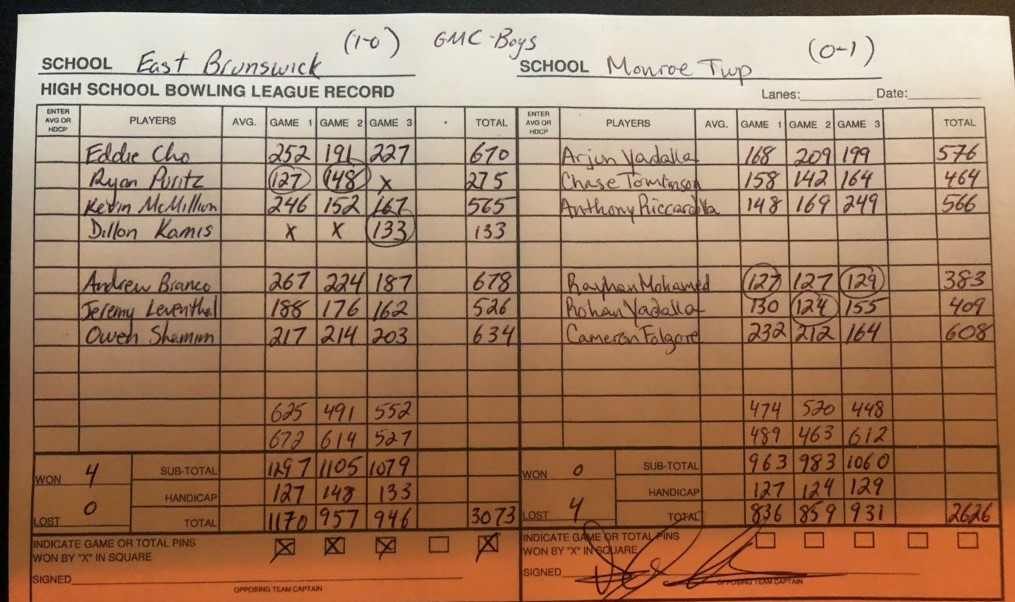 (1-0) GMC-Boys (0-1)
SCHOOL East Brunswick SCHOOL Monroe Twp
HIGH SCHOOL BOWLING LEAGUE RECORD Lanes: Date:
ENTER AVG OR HDCP PLAYERS AVG. GAME 1 GAME 2 GAME 3 TOTAL ENTER AVG OR HDCP PLAYERS AVG. GAME 1 GAME 2 GAME 3 TOTAL
Eddie Cho 252 191 227 670 Arjun Vadalla 168 209 199 576
Ryan Puritz 127 148 X 275 Chase Tomlinson 158 142 164 464
Kevin McMillion 246 152 167 565 Anthony 148 169 249 566
Dillon Kamis X X 133 133
Andrew Branco 267 224 187 678 Rayhan Mohamed 127 127 129 383
Jeremy Leventhal 188 176 162 526 Rohan Vadalla 130 124 155 409
Owen 217 214 203 634 Cameron Folgore 232 212 164 608
625 491 552 474 520 448
672 614 527 489 463 612
WON 4 SUB-TOTAL 1297 1105 1079 WON 0 SUB-TOTAL 963 983 1060
HANDICAP 127 148 133 HANDICAP 127 124 129
LOST 0 TOTAL 1170 957 946 3073 LOST 4 TOTAL 836 859 931 2626
INDICATE GAME OR TOTAL PINS X X X X INDICATE GAME OR TOTAL PINS
WON BY "X" IN SQUARE WON BY "X" IN SQUARE
SIGNED SIGNED
OPPOSING TEAM CAPTAIN OPPOSING TEAM CAPTAIN